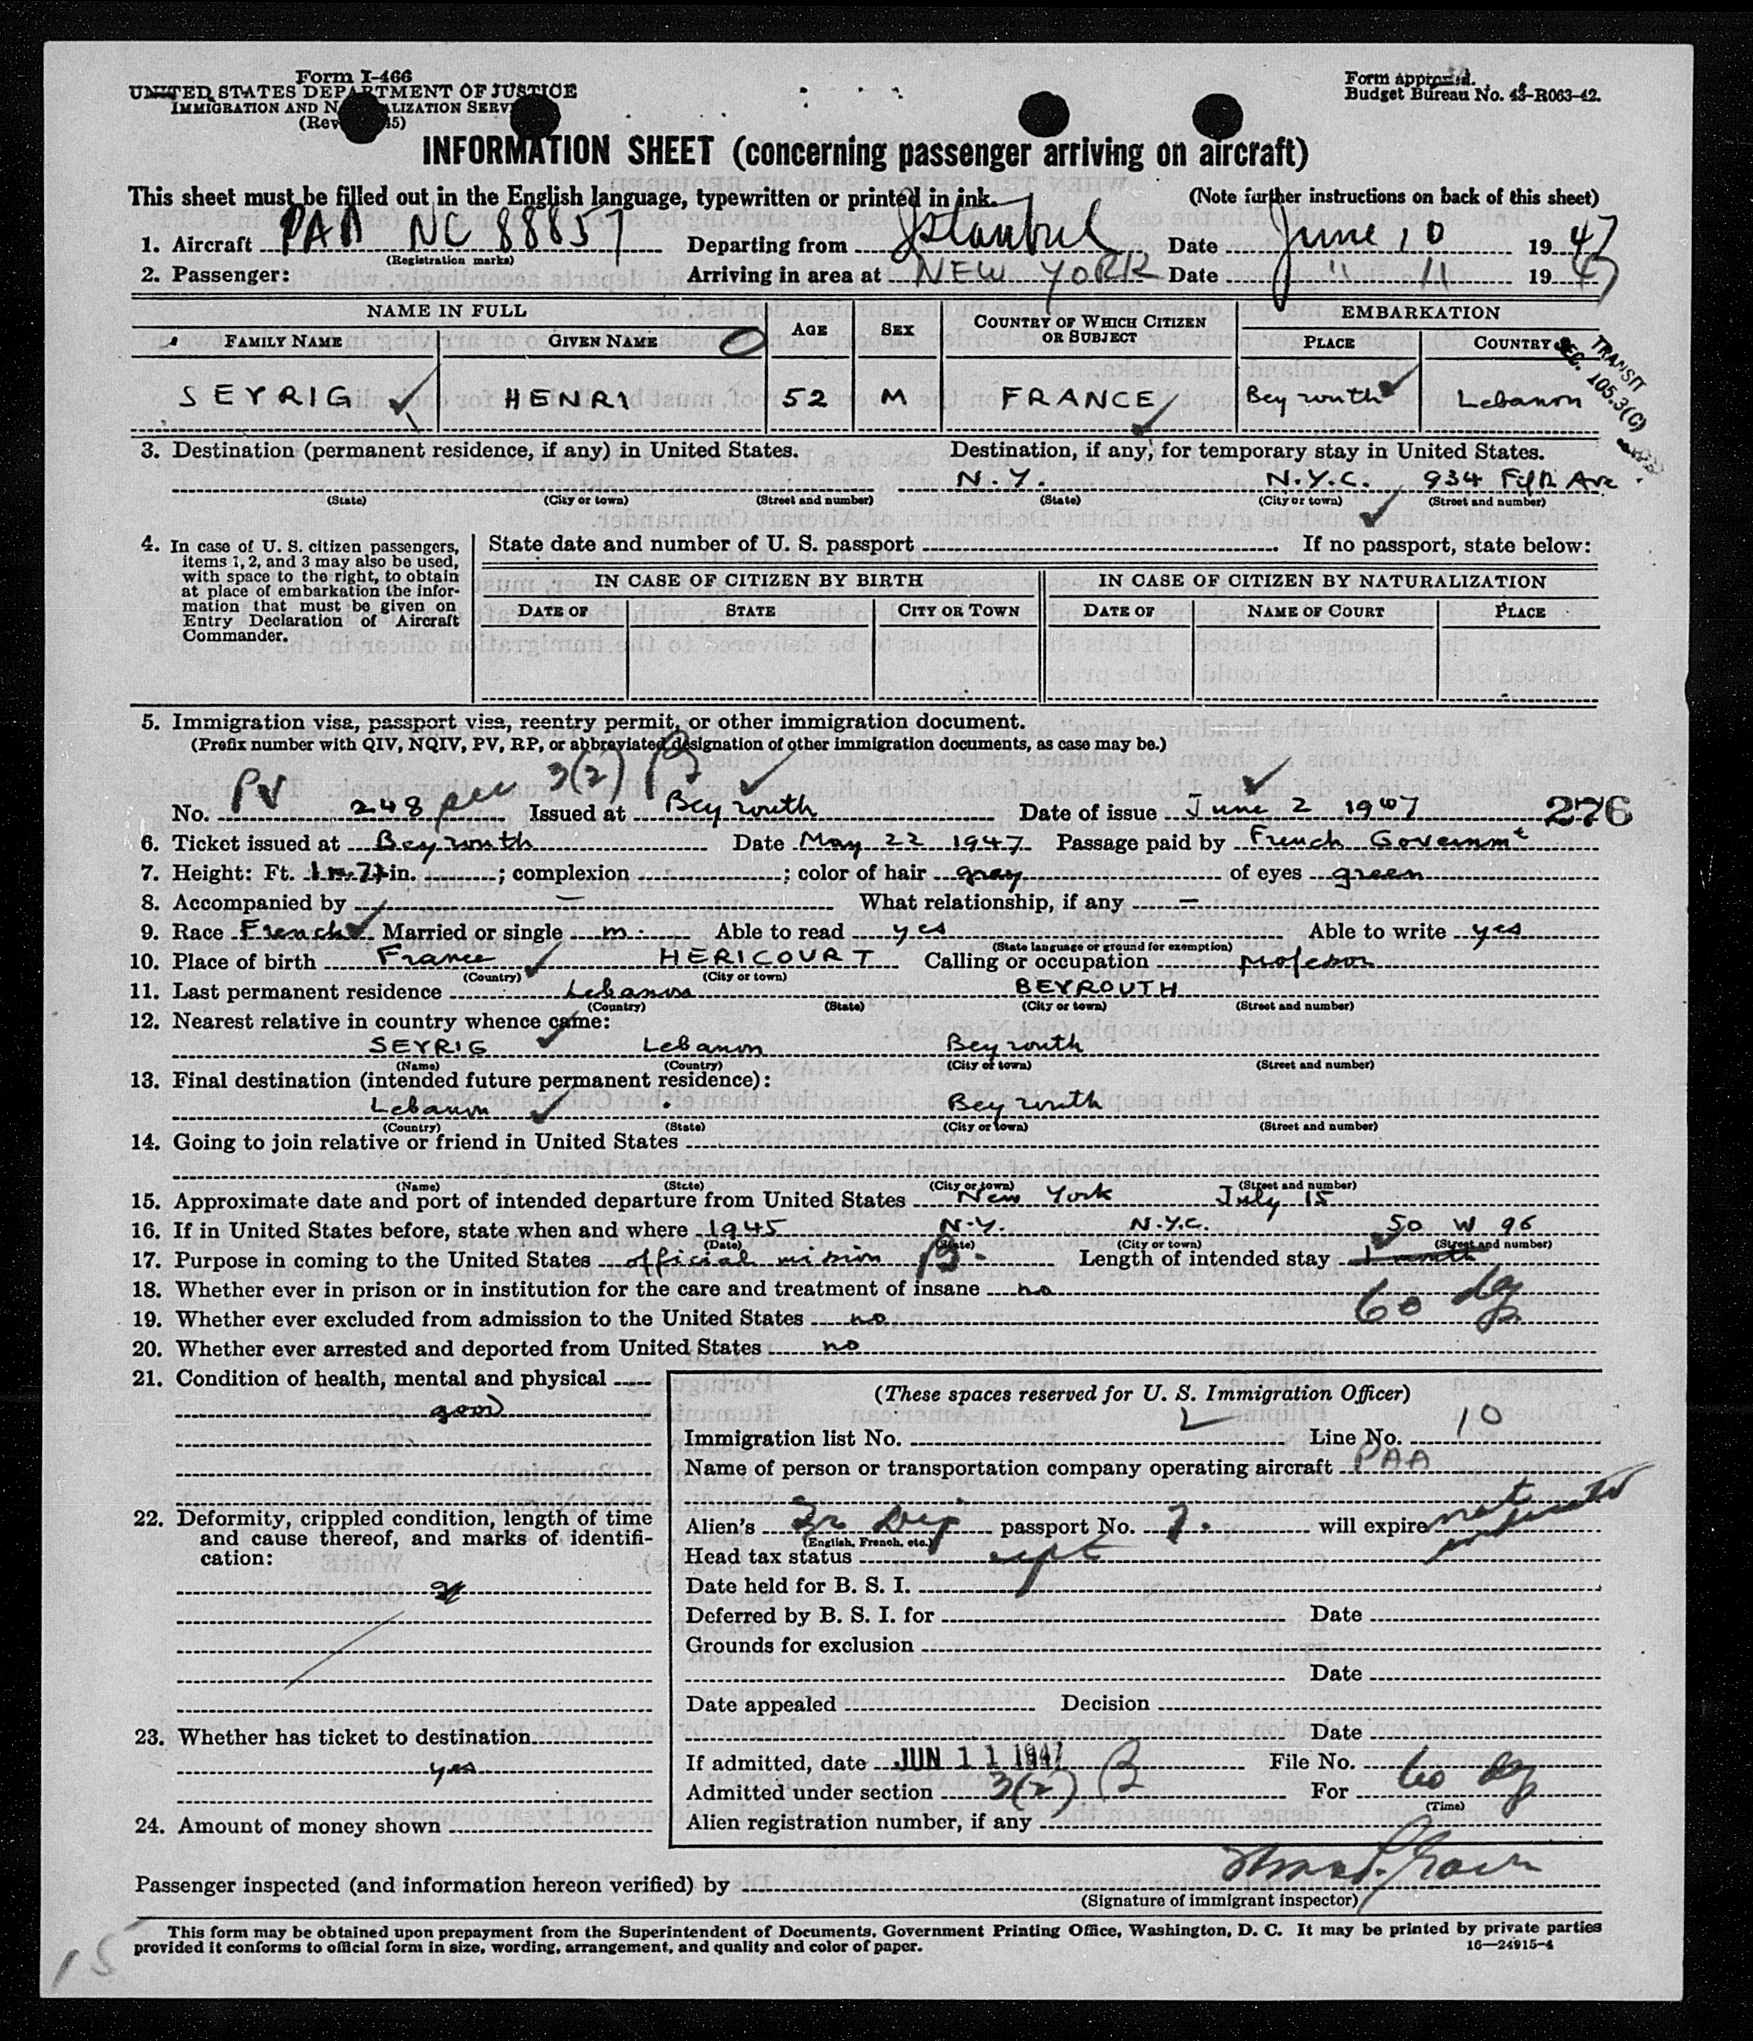 Form I-466
UNITED STATES DEPARTMENT OF JUSTICE
IMMIGRATION AND NATURALIZATION SERVICE
(Rev. 45)
Form approved.
Budget Bureau No. 43-R063-42.
INFORMATION SHEET (concerning passenger arriving on aircraft)
This sheet must be filled out in the English language, typewritten or printed in ink. (Note further instructions on back of this sheet)
1. Aircraft PAA NC 88857 Departing from Istanbul Date June 10 1947
(Registration marks)
2. Passenger: Arriving in area at NEW YORK Date " 11 1947
NAME IN FULL AGE SEX COUNTRY OF WHICH CITIZEN OR SUBJECT EMBARKATION
FAMILY NAME GIVEN NAME PLACE COUNTRY
SEYRIG HENRI 52 M FRANCE Beyrouth Lebanon
TRANSIT
SEC. 105.3(C)
3. Destination (permanent residence, if any) in United States. Destination, if any, for temporary stay in United States.
N.Y. N.Y.C. 934 Fifth Ave
(State) (City or town) (Street and number) (State) (City or town) (Street and number)
4. In case of U. S. citizen passengers, items 1, 2, and 3 may also be used, with space to the right, to obtain at place of embarkation the information that must be given on Entry Declaration of Aircraft Commander.
State date and number of U. S. passport If no passport, state below:
IN CASE OF CITIZEN BY BIRTH IN CASE OF CITIZEN BY NATURALIZATION
DATE OF STATE CITY OR TOWN DATE OF NAME OF COURT PLACE
5. Immigration visa, passport visa, reentry permit, or other immigration document.
(Prefix number with QIV, NQIV, PV, RP, or abbreviated designation of other immigration documents, as case may be.)
3(2) B
No. PV 248 sec Issued at Beyrouth Date of issue June 2 1947 276
6. Ticket issued at Beyrouth Date May 22 1947 Passage paid by French Governmt
7. Height: Ft. 1m.77 in. ; complexion ; color of hair gray of eyes green
8. Accompanied by — What relationship, if any —
9. Race French Married or single m. Able to read yes Able to write yes
(State language or ground for exemption)
10. Place of birth France HERICOURT Calling or occupation professor
(Country) (City or town)
11. Last permanent residence Lebanon BEYROUTH
(Country) (State) (City or town) (Street and number)
12. Nearest relative in country whence came:
SEYRIG Lebanon Beyrouth
(Name) (Country) (City or town) (Street and number)
13. Final destination (intended future permanent residence):
Lebanon Beyrouth
(Country) (State) (City or town) (Street and number)
14. Going to join relative or friend in United States
(Name) (State) (City or town) (Street and number)
15. Approximate date and port of intended departure from United States New York July 15
16. If in United States before, state when and where 1945 N.Y. N.Y.C. 50 W 96
(Date) (State) (City or town) (Street and number)
17. Purpose in coming to the United States official mission B Length of intended stay 1 month
60 dys
18. Whether ever in prison or in institution for the care and treatment of insane no
19. Whether ever excluded from admission to the United States no
20. Whether ever arrested and deported from United States no
21. Condition of health, mental and physical
good
22. Deformity, crippled condition, length of time and cause thereof, and marks of identification:
23. Whether has ticket to destination
yes
24. Amount of money shown
(These spaces reserved for U. S. Immigration Officer)
Immigration list No. Line No. 10
Name of person or transportation company operating aircraft PAA
Alien's Fr Dip passport No. 7. will expire not
(English, French, etc.)
Head tax status
Date held for B. S. I.
Deferred by B. S. I. for Date
Grounds for exclusion
Date
Date appealed Decision
Date
If admitted, date JUN 11 1947 File No.
Admitted under section 3(2) B For 60 dys
(Time)
Alien registration number, if any
Passenger inspected (and information hereon verified) by
(Signature of immigrant inspector)
This form may be obtained upon prepayment from the Superintendent of Documents, Government Printing Office, Washington, D. C. It may be printed by private parties
provided it conforms to official form in size, wording, arrangement, and quality and color of paper. 16—24915-4
15